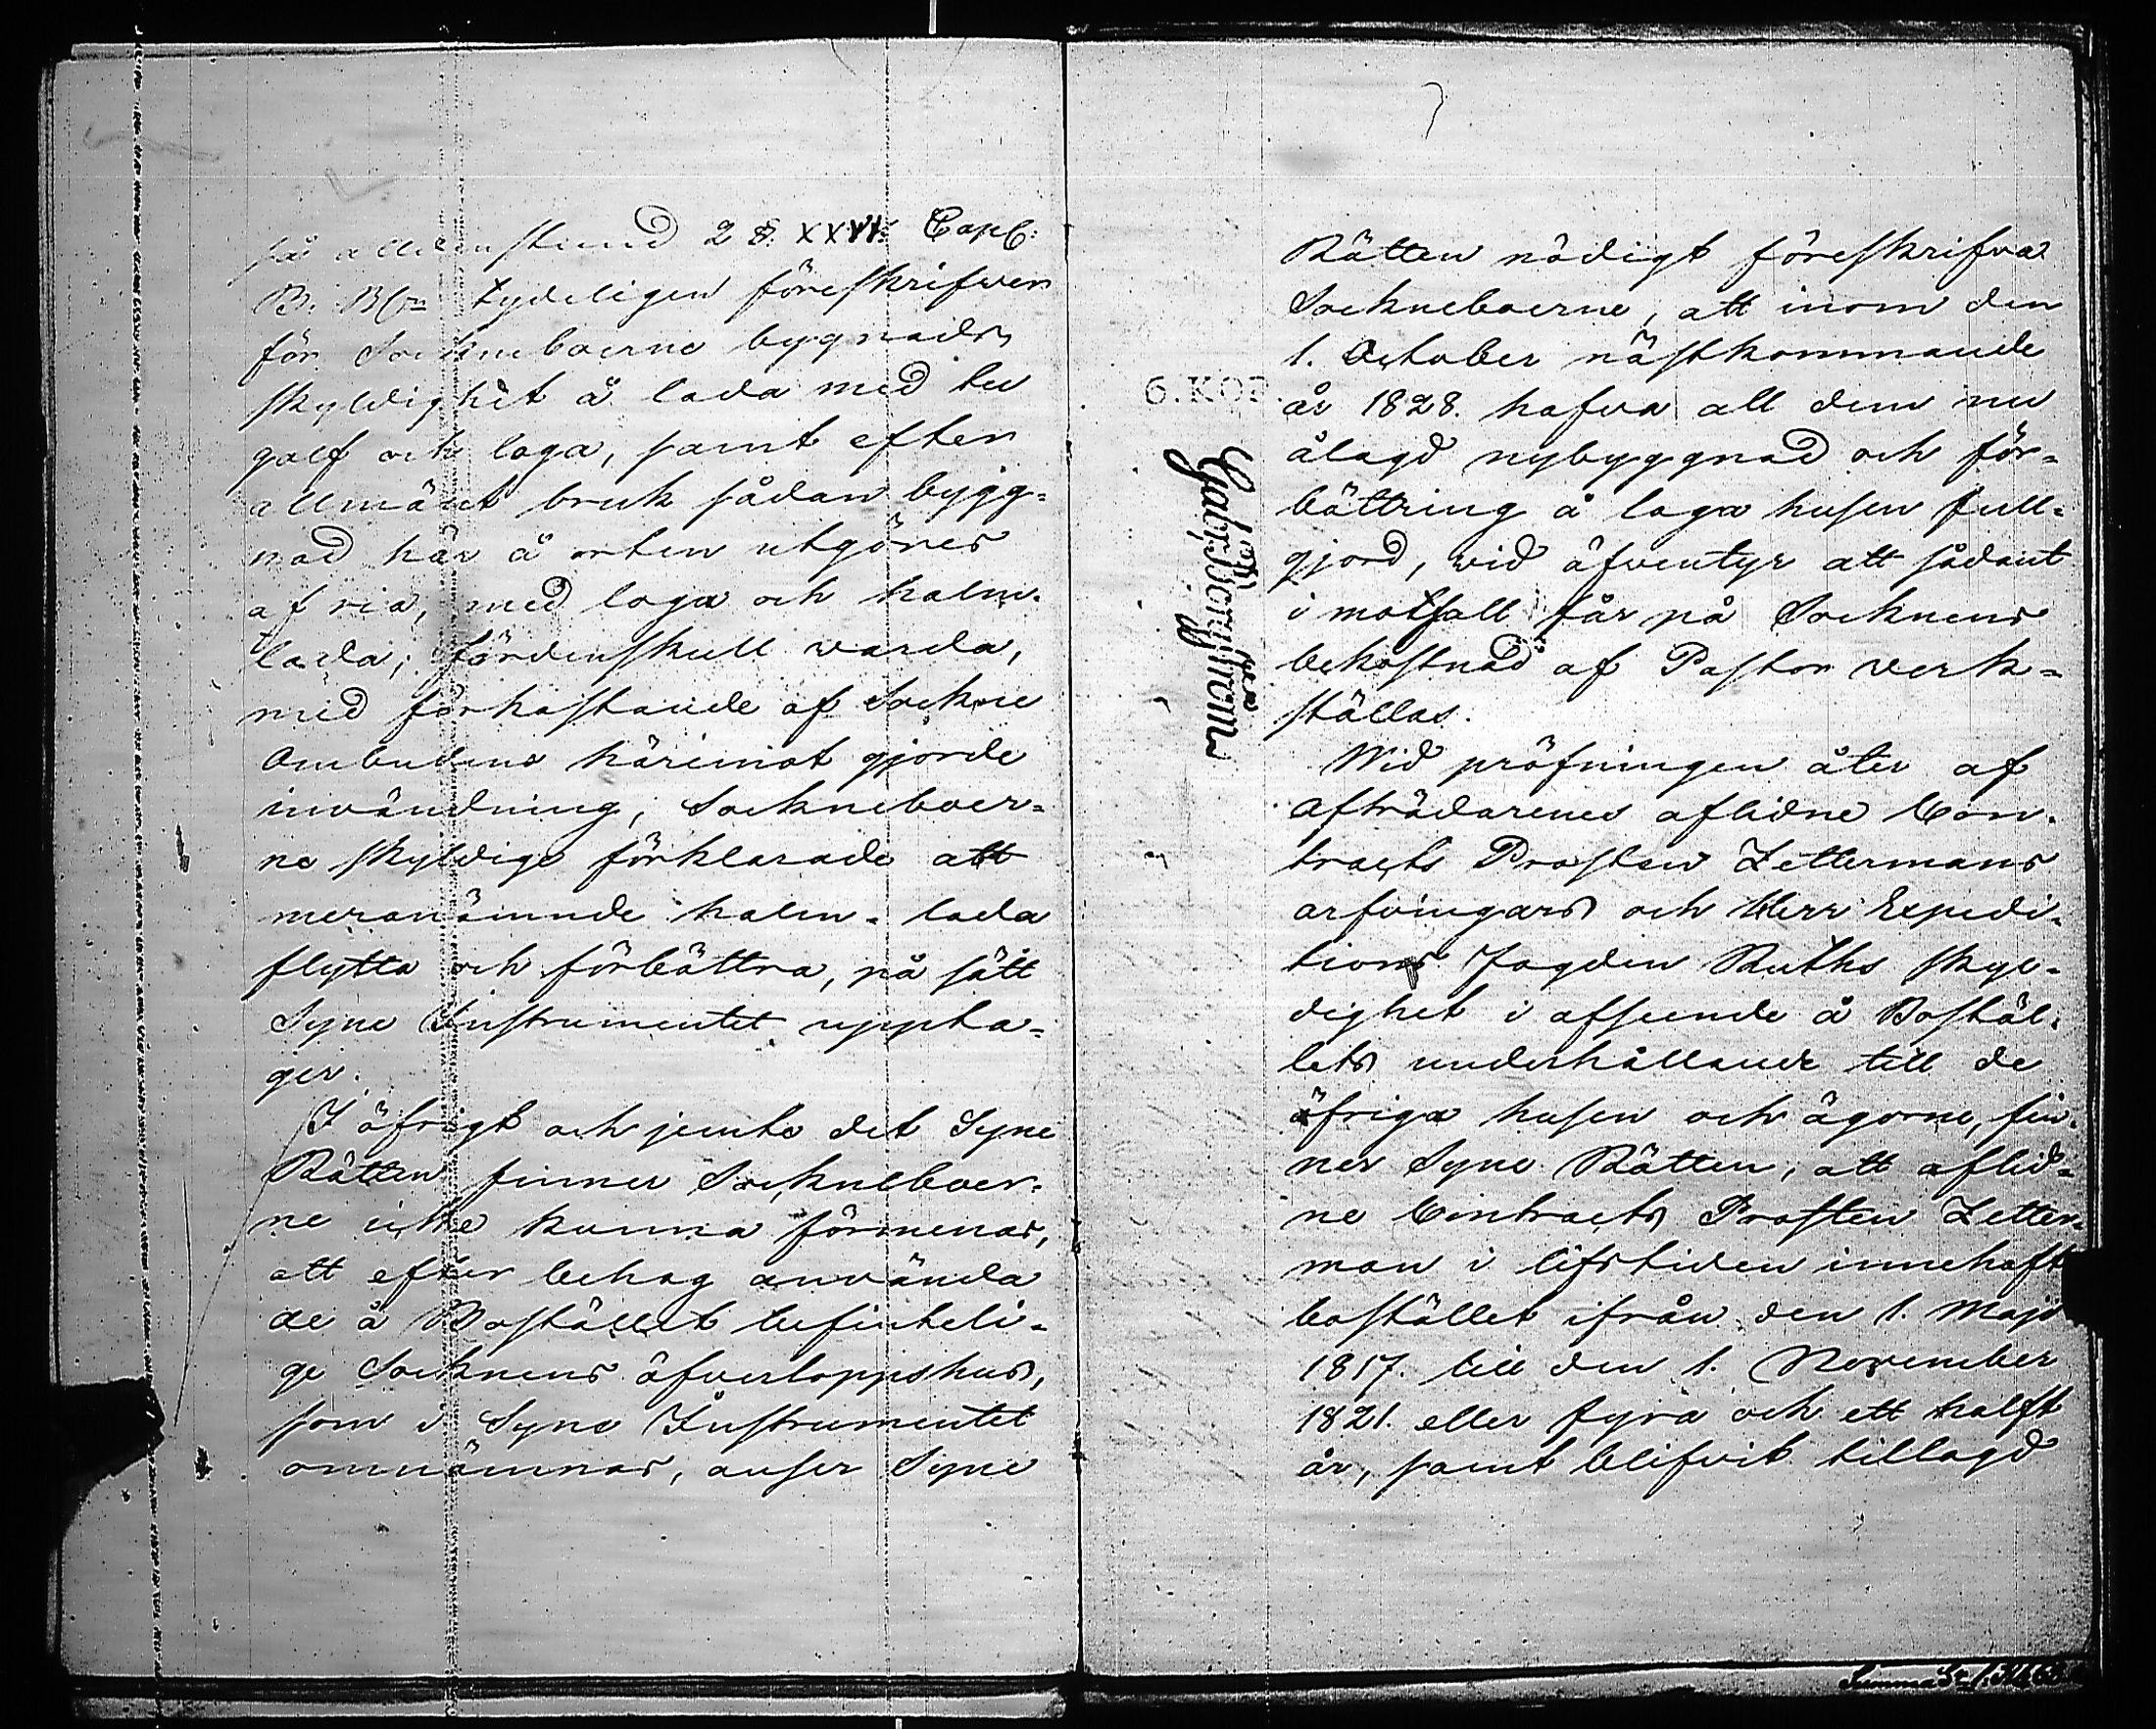 så alldenstund 2 §. XXVI: Cap:
B. B:n tydeligen föreskrifven
för Sockneboerne bygnads
skyldighet å lada med tu
golf och loga, samt efter
allmänt bruk sådan bygg-
nad här å orten utgöres
af ria, med loga och halm-
lada; fördenskull varda,
med förkastande af Sockne
Ombudens häremot gjorde
invändning, Sockneboer-
ne skyldige förklarade att
meranämnde halm-lada
flytta och förbättra, på sätt
Syne Instrumentet uppta-
ger.
I öfrigt och jemte det Syne
Rätten finner Sockneboer-
ne icke kunna förmenas,
att efter behag använda
de å Bostället befinteli-
ge Socknens öfverloppshus,
som i Syne Instrumentet
omnämnas, anser Syne
Rätten nödigt föreskrifva
Sockneboerne, att inom den
1. October nästkommande
6. KOP.
år 1828. hafva all dem nu
ålagd nybyggnad och för-
bättring å laga husen full-
gjord, vid äfventyr att sådant
i motfall får på Socknens
bekostnad af Pastor verk-
ställas.
Wid pröfningen åter af
Afträdarenes aflidne Con-
tracts Prosten Zettermans
arfvingars och Herr Expedi-
tions Fogden Ruths skyl-
dighet i afseende å Bostäl-
lets underhållande till de
öfriga husen och ägorne, fin-
ner Syne Rätten, att aflid-
ne Contracts Prosten Zetter-
man i lifstiden innehaft
bostället ifrån den 1. Maji
1817. till den 1. November
1821. eller fyra och ett halft
år, samt blifvit tillagd